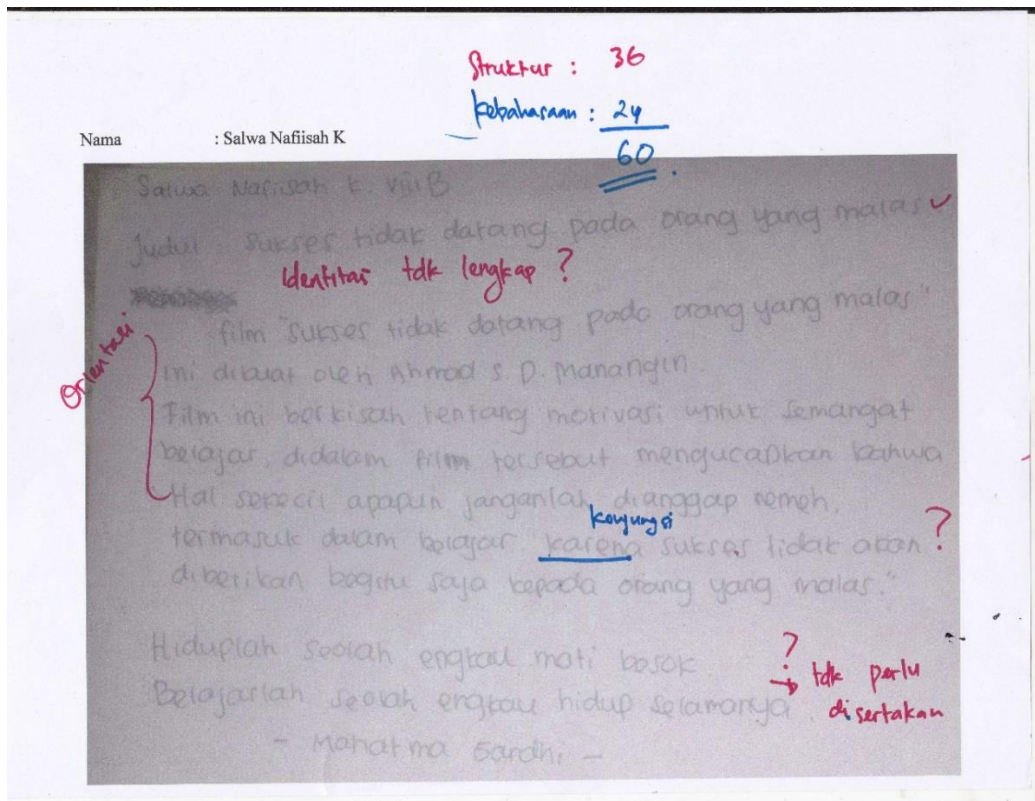 Struktur : 36
Kebahasaan : 24
60
Nama : Salwa Nafiisah K
Salwa Nafiisah K VIII B
Judul : Sukses tidak datang pada orang yang malas
Identitas tdk lengkap ?
Orientasi
film "Sukses tidak datang pada orang yang malas"
ini dibuat oleh Ahmad S. D. Manangin.
Film ini berkisah tentang motivasi untuk semangat
belajar, didalam film tersebut mengucapkan bahwa
"Hal sekecil apapun janganlah dianggap remeh,
konjungsi
termasuk dalam belajar, karena sukses tidak akan ?
diberikan begitu saja kepada orang yang malas."
Hiduplah seolah engkau mati besok ?
Belajarlah seolah engkau hidup selamanya → tdk perlu disertakan
- Mahatma Gandhi -